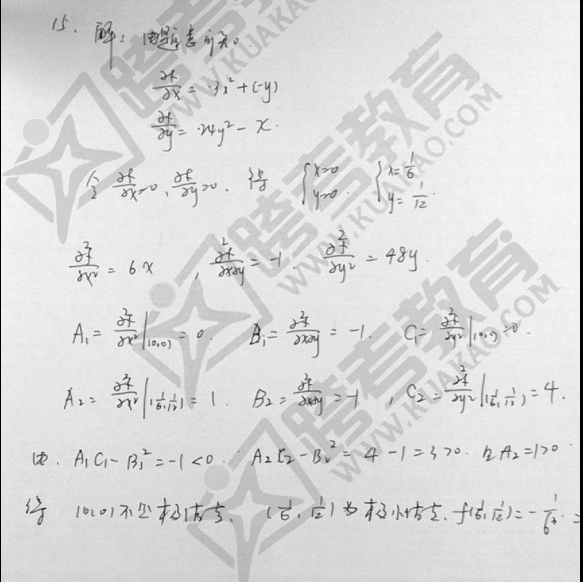 15. 解: 由题意可知
∂f/∂x = 3x² + (-y)
∂f/∂y = 24y² - x.
令 ∂f/∂x=0, ∂f/∂y=0. 得 {x=0 y=0. {x=1/6 y=1/12.
∂²f/∂x² = 6x , ∂²f/∂x∂y = -1. ∂²f/∂y² = 48y.
A₁ = ∂²f/∂x²|(0,0) = 0. B₁ = ∂²f/∂x∂y = -1. C₁ = ∂²f/∂y²|(0,0) = 0.
A₂ = ∂²f/∂x²|(1/6,1/12) = 1. B₂ = ∂²f/∂x∂y = -1 , C₂ = ∂²f/∂y²|(1/6,1/12) = 4.
由. A₁C₁ - B₁² = -1 < 0. A₂C₂ - B₂² = 4 - 1 = 3 > 0. 且 A₂ = 1 > 0
得 (0,0) 不是极值点. (1/6, 1/12) 为极小值点. f(1/6, 1/12) = -
跨考教育
WWW.KUAKAO.COM